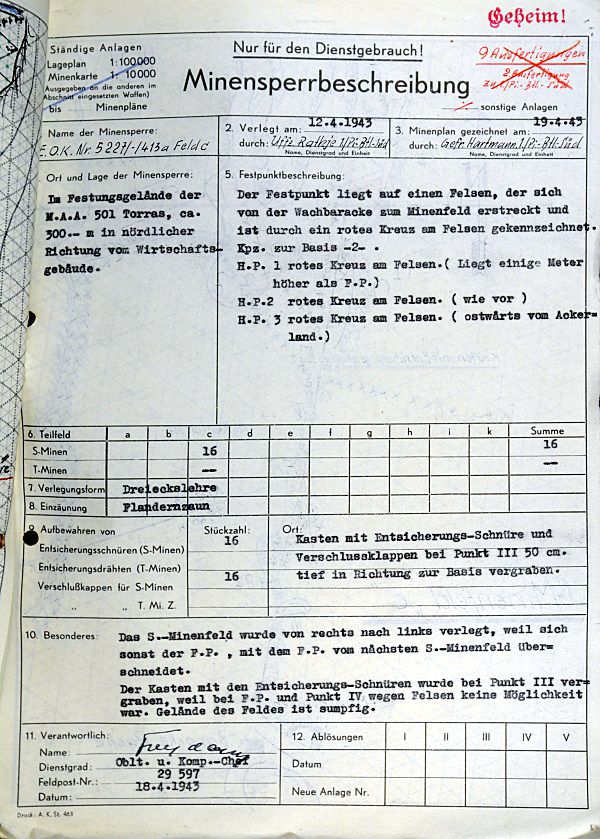 Geheim!
Ständige Anlagen
Lageplan 1:100000
Minenkarte 10000
Ausgegeben an die anderen im
Abschnitt eingesetzten Waffen)
bis — Minenpläne
Nur für den Dienstgebrauch!
Minensperrbeschreibung
9 Ausfertigungen
2. Ausfertigung
1/Pi.-Btl.-Süd
·/. sonstige Anlagen
Name der Minensperre:
F.O.K. Nr. 5227/-/413a Feld c
2. Verlegt am: 12.4.1943
durch: Uffz. Rathje 1/Pi-Btl-Süd
Name, Dienstgrad und Einheit
3. Minenplan gezeichnet am: 19.4.43
durch: Gefr. Hartmann 1/Pi-Btl-Süd
Name, Dienstgrad und Einheit
Ort und Lage der Minensperre:
Im Festungsgelände der
M.A.A. 501 Torras, ca.
300.-- m in nördlicher
Richtung vom Wirtschafts-
gebäude.
5. Festpunktbeschreibung:
Der Festpunkt liegt auf einen Felsen, der sich
von der Wachbaracke zum Minenfeld erstreckt und
ist durch ein rotes Kreuz am Felsen gekennzeichnet.
Kpz. zur Basis -2- .
H.P. 1 rotes Kreuz am Felsen.( Liegt einige Meter
höher als F.P.)
H.P.2 rotes Kreuz am Felsen. ( wie vor )
H.P. 3 rotes Kreuz am Felsen. ( ostwärts vom Acker-
land.)
6. Teilfeld a b c d e f g h i k Summe
S-Minen 16 16
T-Minen -- --
7. Verlegungsform Dreieckslehre
8. Einzäunung Flandernzaun
9. Aufbewahren von Stückzahl: Ort:
Entsicherungsschnüren (S-Minen) 16
Entsicherungsdrähten (T-Minen)
Verschlußkappen für S-Minen 16
„ „ T. Mi. Z.
Kasten mit Entsicherungs-Schnüre und
Verschlussklappen bei Punkt III 50 cm.
tief in Richtung zur Basis vergraben.
10. Besonderes: Das S.-Minenfeld wurde von rechts nach links verlegt, weil sich
sonst der F.P. , mit dem F.P. vom nächsten S.-Minenfeld über=
schneidet.
Der Kasten mit den Entsicherungs-Schnüren wurde bei Punkt III ver-
graben, weil bei F.P. und Punkt IV wegen Felsen keine Möglichkeit
war. Gelände des Feldes ist sumpfig.
11. Verantwortlich:
Name:
Dienstgrad: Oblt. u. Komp.-Chef
Feldpost-Nr.: 29 597
Datum: 18.4.1943
12. Ablösungen I II III IV V
Datum
Neue Anlage Nr.
Druck: A. K. St. 453